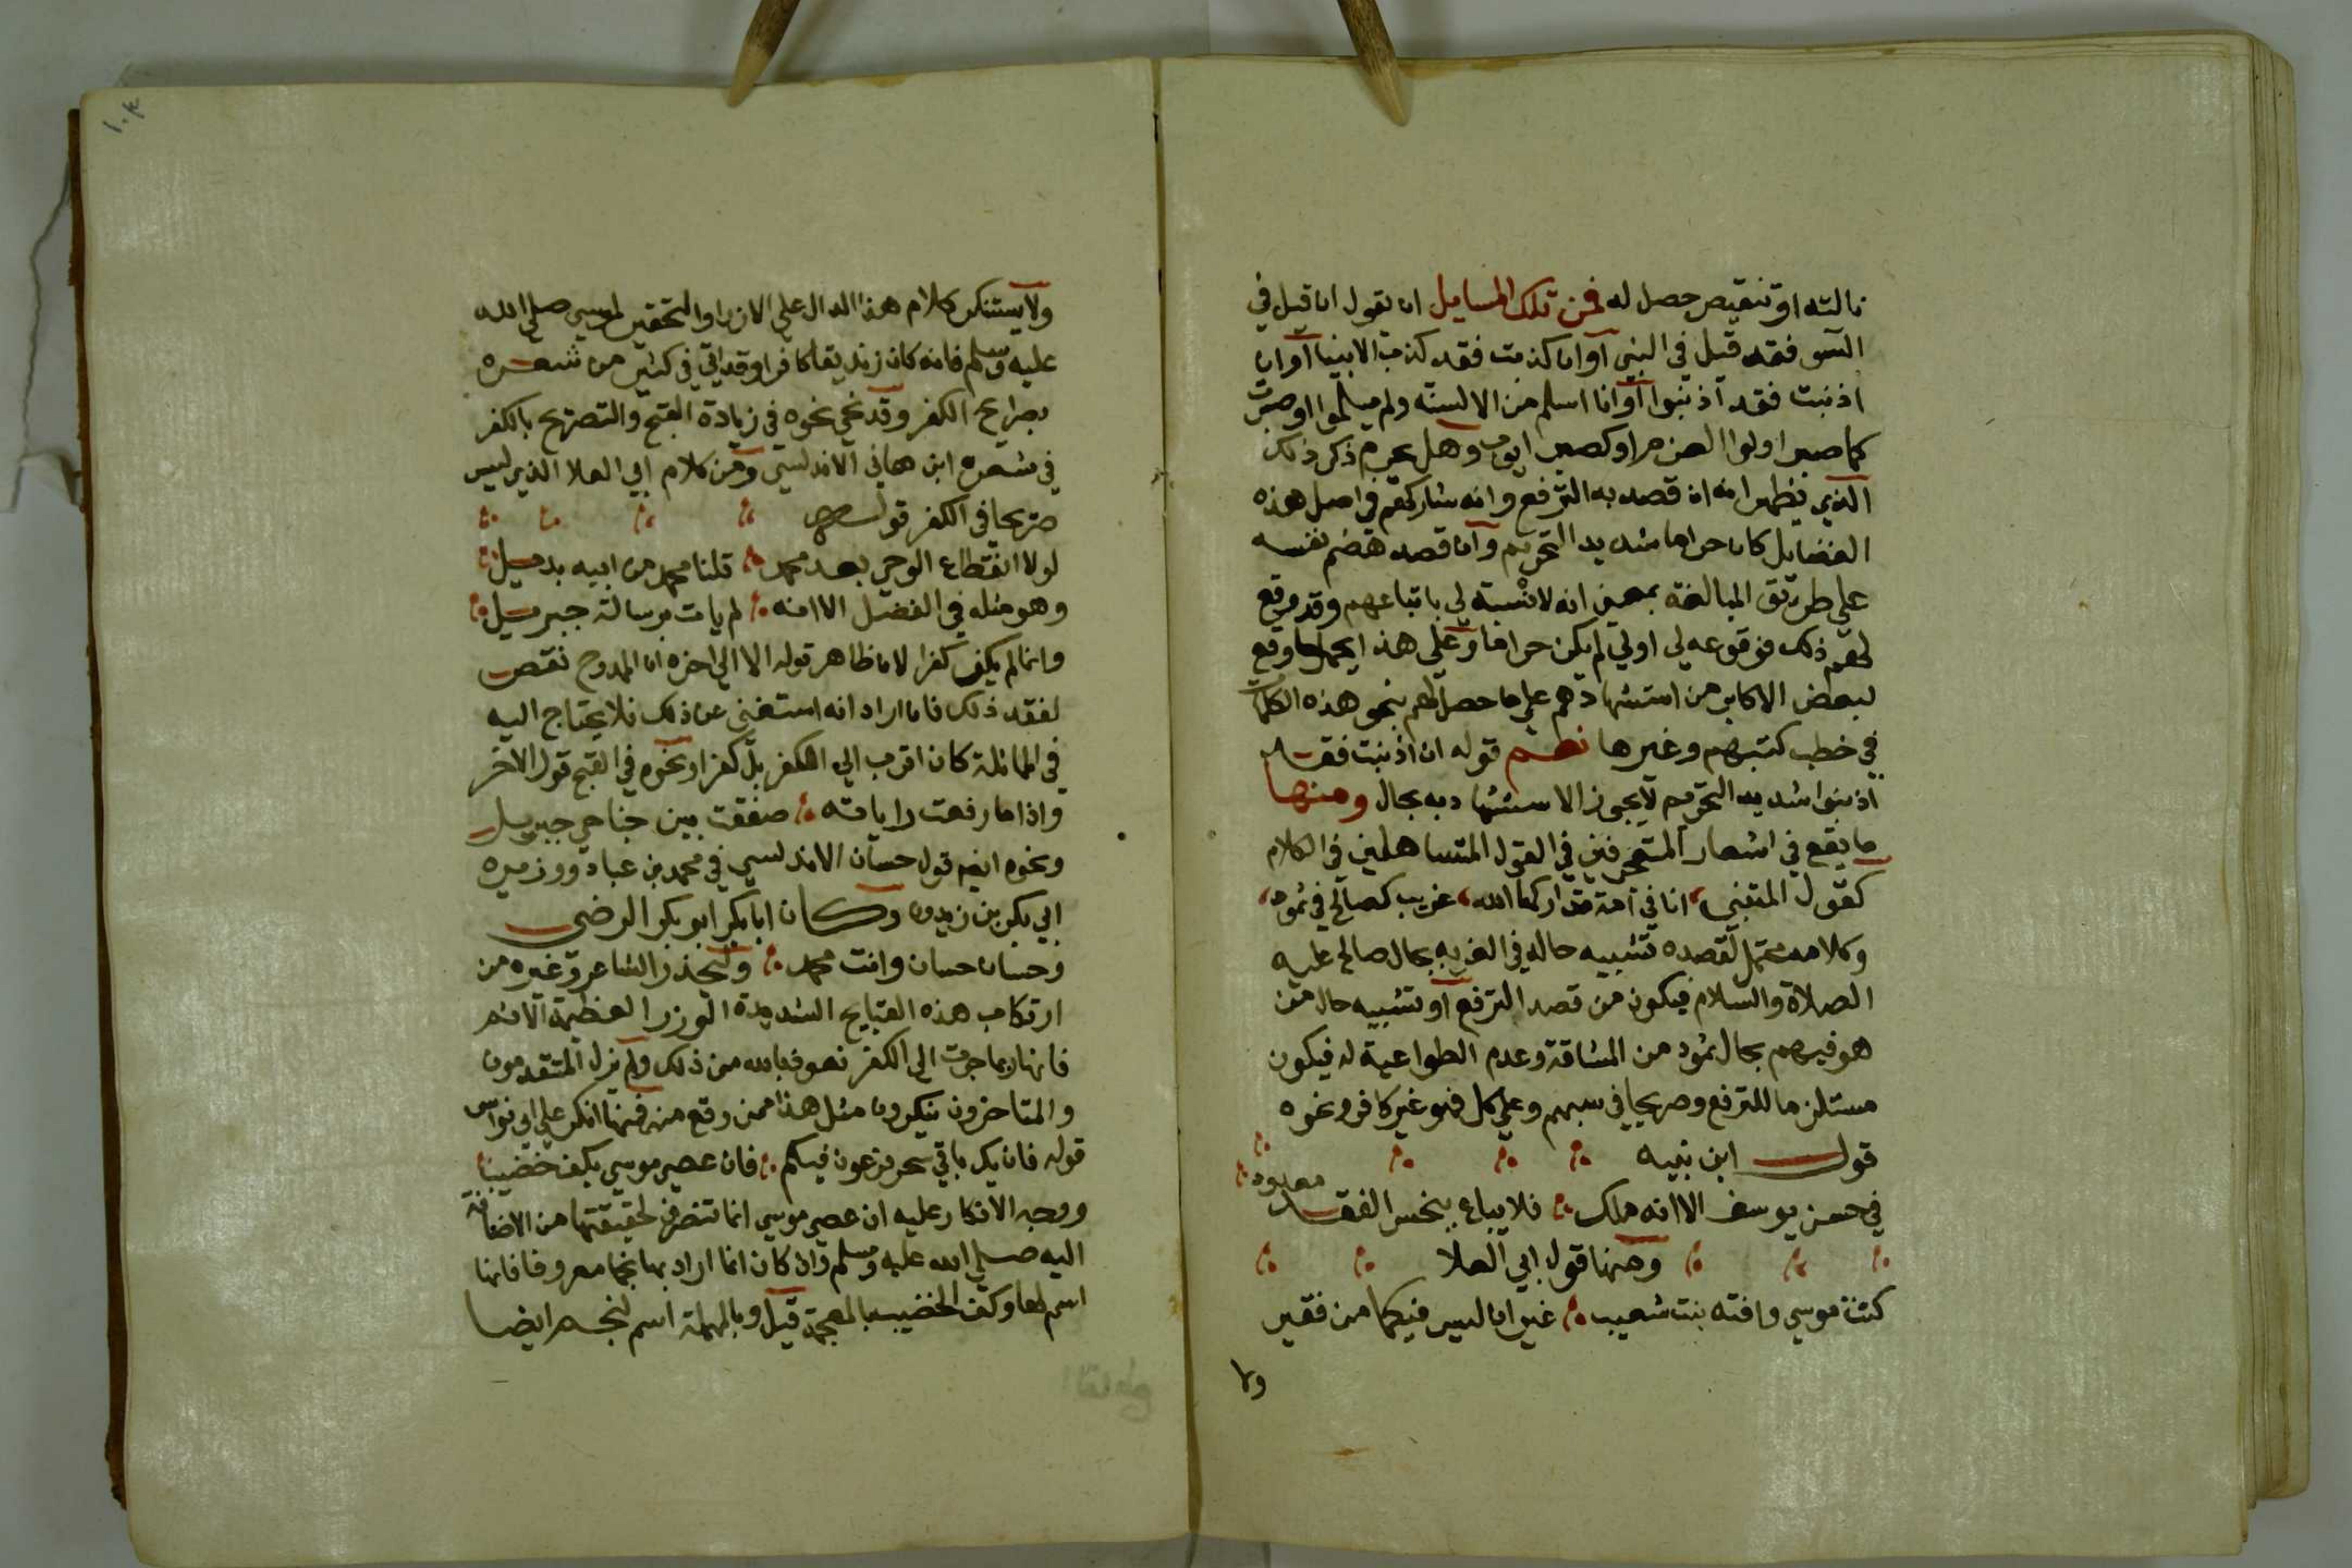 نالته او تنقيص حصل له فمن تلك المسايل ان يقول ان قيل في
السو فقد قيل في النبي او ان كذبت فقد كذب الانبيا او ان
اذنبت فقد اذنبوا او انا اسلم من الالسنه ولم يسلموا او صبرت
كما صبر اولوا العزم او كصبر ايوب وهل يحرم ذكر ذلك
الذي يظهر انه ان قصد به الترفع وانه شاركهم في اصل هذه
الفضايل كان حراما شديد التحريم وان قصد هضم نفسه
على طريق المبالغة بمعنى انه لا نسبة لي باتباعهم وقد وقع
لهم ذلك فوقوعه لي اولي لم يكن حراما وعلى هذا يحمل ما وقع
لبعض الاكابر من استشهادهم على ما حصل لهم بنحو هذه الكلمات
في خطب كتبهم وغيرها نعم قوله ان اذنبت فقد
اذنبوا شديد التحريم لا يجوز الاستشهاد به بحال ومنها
ما يقع في اشعار المتعجرفين في القول المتساهلين في الكلام
كقول المتنبي انا في امة تداركها الله غريب كصالح في ثمود
وكلامه محتمل لقصده تشبيه حاله في الغربه بحال صالح عليه
الصلاة والسلام فيكون من قصد الترفع او تشبيه حال من
هو فيهم بحال ثمود من المشاقة وعدم الطواعية له فيكون
مستلزما للترفع وصريحا في سبهم وعلى كل فهو غير كافر ونحوه
قول ابن نبيه
في حسن يوسف الا انه ملك فلا يباع ببخس النقد معدود
ومنها قول ابي العلا
كنت موسي وافته بنت شعيب غير ان ليس فيكما من فقير
ولا
١٠٤
ولا يستنكر كلام هذا الدال على الازراء والتحقير لموسي صلى الله
عليه وسلم فانه كان زنديقا كافرا وقد اتي في كثير من شعره
بصرايح الكفر وقد نحي نحوه في زيادة القبح والتصريح بالكفر
في شعره ابن هاني الاندلسي ومن كلام ابي العلا الذي ليس
صريحا في الكفر قوله
لولا انقطاع الوحي بعد محمد قلنا محمد من ابيه بديل
وهو مثله في الفضل الا انه لم يات برسالة جبريل
وانما لم يكن كفرا لان ظاهر قوله الا الي اخره ان الممدوح نقص
لفقد ذلك فان اراد انه استغنى عن ذلك فلا يحتاج اليه
في المماثلة كان اقرب الي الكفر بل كفرا ونحوه في القبح قول الاخر
واذا ما رفعت راياته صفقت بين جناحي جبريل
ونحوه ايضا قول حسان الاندلسي في محمد بن عباد ووزيره
ابي بكر بن زيدون وكان ابا بكر ابو بكر الرضى
وحسان حسان وانت محمد وليحذر الشاعر وغيره من
ارتكاب هذه القبايح الشديدة الوزر العظيمة الاثم
فانها ربما جرت الي الكفر نعوذ بالله من ذلك ولم يزل المتقدمون
والمتاخرون ينكرون مثل هذا ممن وقع منه فمما انكر على ابي نواس
قوله فان يك باقي سحر فرعون فيكم فان عصي موسي بكف خضيبا
ووجه الانكار عليه ان عصي موسي انما تنصرف لحقيقتها من الاضافة
اليه صلى الله عليه وسلم وان كان انما اراد بها نجما معروفا فانها
اسم لها وكف الخضيب بالمعجمة قيل وبالمهملة اسم لنجم ايضا